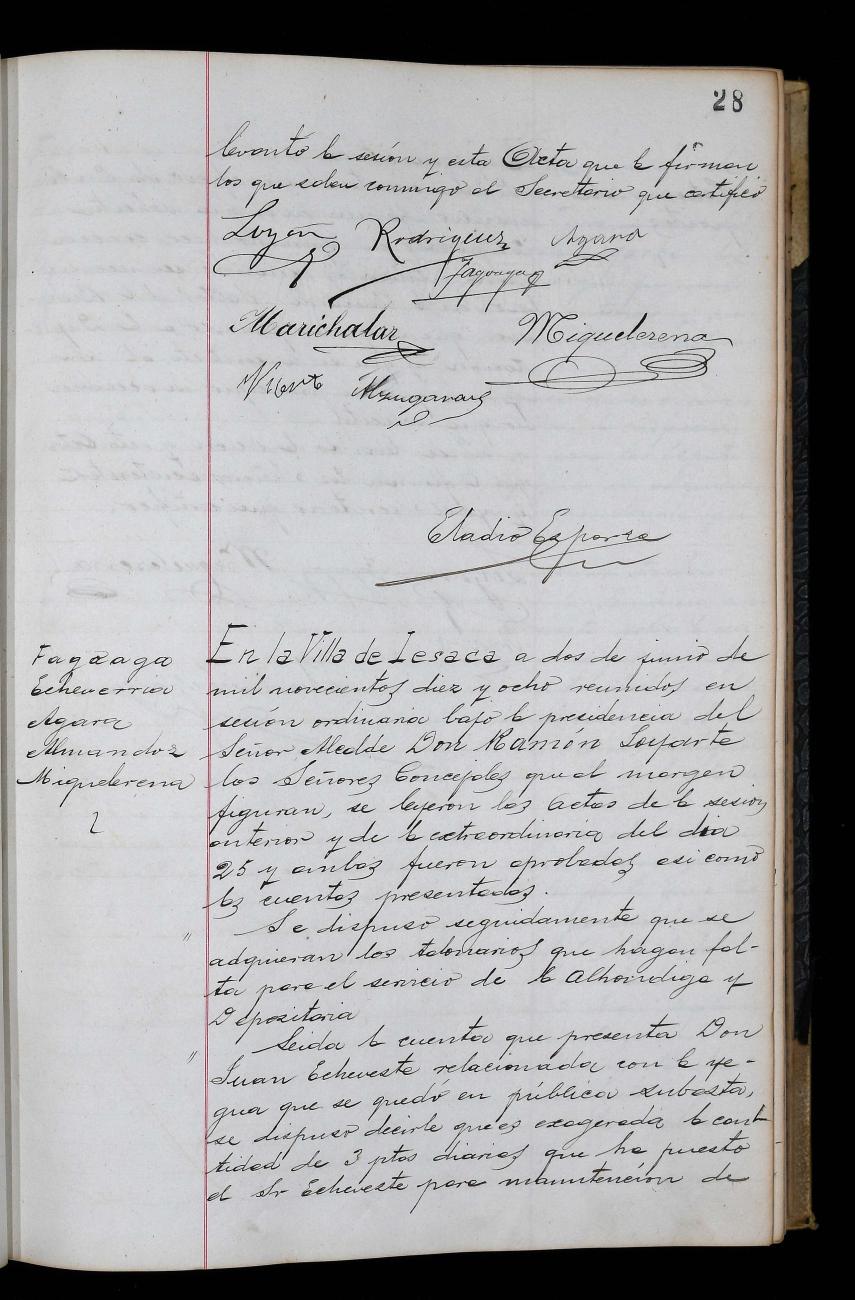 28
levantó la sesión y esta Acta que la firman
los que saben conmigo el Secretario que certifico
Rodriguez Agara
Fagoaga
Marichalar Miguelerena
Eladio Esparza
Fagoaga
Echeverria
Agara
Almandoz
Miguelerena
En la Villa de Lesaca a dos de junio de
mil novecientos diez y ocho reunidos en
sesión ordinaria bajo la presidencia del
Señor Alcalde Don Ramón Loyarte
los Señores Concejales que al margen
figuran, se leyeron las Actas de la sesion
anterior y de la extraordinaria del dia
25 y ambas fueron aprobadas asi como
las cuentas presentadas.
" Se dispuso seguidamente que se
adquieran los talonarios que hagan fal-
ta para el servicio de la Alhondiga y
Depositaria
" Leida la cuenta que presenta Don
Juan Echeveste relacionada con la ye-
gua que se quedó en pública subasta,
se dispuso decirle que es exagerada la can
tidad de 3 ptas diarias que ha puesto
el Sr Echeveste para manutención de